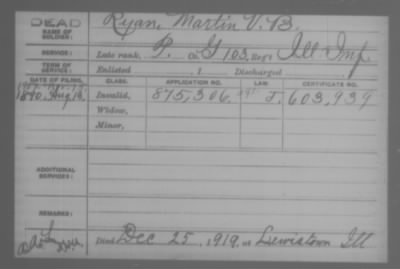 DEAD
NAME OF SOLDIER:
Ryan, Martin V. B.
SERVICE:
Late rank, P. Co. G 103, Reg't Ill Inf
TERM OF SERVICE:
Enlisted , 1 Discharged
DATE OF FILING.
CLASS.
APPLICATION NO.
LAW.
CERTIFICATE NO.
1890. Aug. 18.
Invalid,
875,306.
J.
603,939
Widow,
Minor,
ADDITIONAL SERVICES:
REMARKS:
Died Dec 25, 1919, at Lewistown Ill